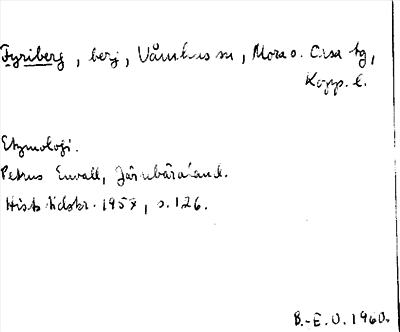 Fyriberg, berg, Våmhus sn, Mora o. Orsa tg,
Kopp. l.
Etymologi.
Petrus Envall, Järnbäraland.
Hist. tidskr. 1958, s. 126.
B.-E. O. 1960.